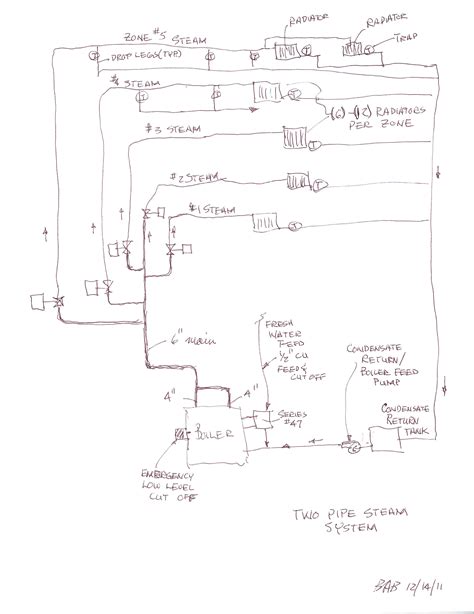 ZONE #5 STEAM
RADIATOR
RADIATOR
TRAP
DROP LEGS (TYP)
T
T
T
T
T
#4 STEAM
T
T
T
(6)-(12) RADIATORS
PER ZONE
#3 STEAM
T
#2 STEAM
T
#1 STEAM
T
6" main
FRESH
WATER
FEED
1/2" CU
FEED &
CUT OFF
CONDENSATE
RETURN/
BOILER FEED
PUMP
4"
4"
CONDENSATE
RETURN
TANK
SERIES
#47
BOILER
EMERGENCY
LOW LEVEL
CUT OFF
TWO PIPE STEAM
SYSTEM
BAB 12/14/11